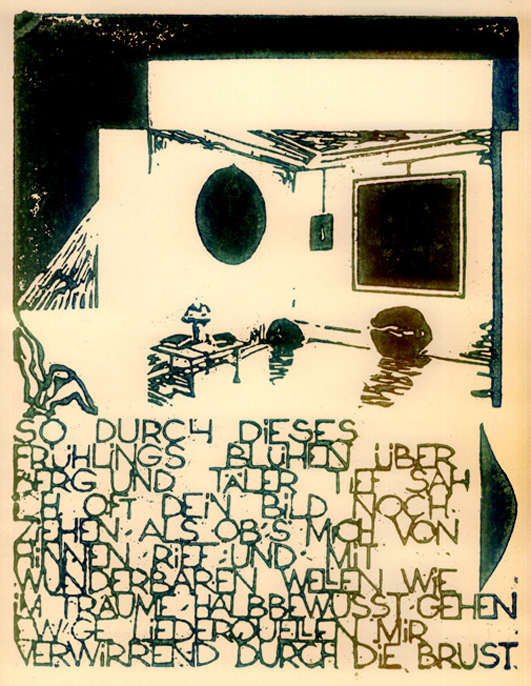 SO DURCH DIESES
FRÜHLINGS BLÜHEN ÜBER
BERG UND TÄLER TIEF SAH
ICH OFT DEIN BILD NOCH
ZIEHEN ALS OB'S MICH VON
HINNEN RIEF UND MIT
WUNDERBAREN WELLEN WIE
IM TRAUME HALBBEWUSST GEHEN
EWIGE LIEDERQUELLEN MIR
VERWIRREND DURCH DIE BRUST.